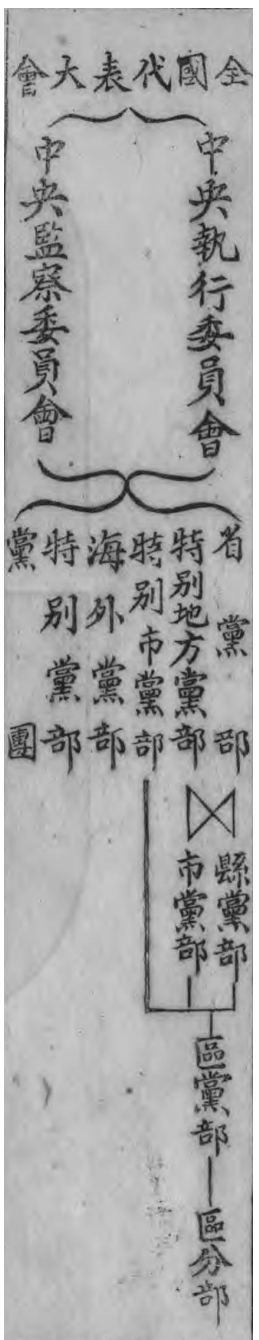 全國代表大會
中央執行委員會
中央監察委員會
省黨部
特別地方黨部
特別市黨部
海外黨部
特別黨部
黨團
縣黨部
市黨部
區黨部
區分部